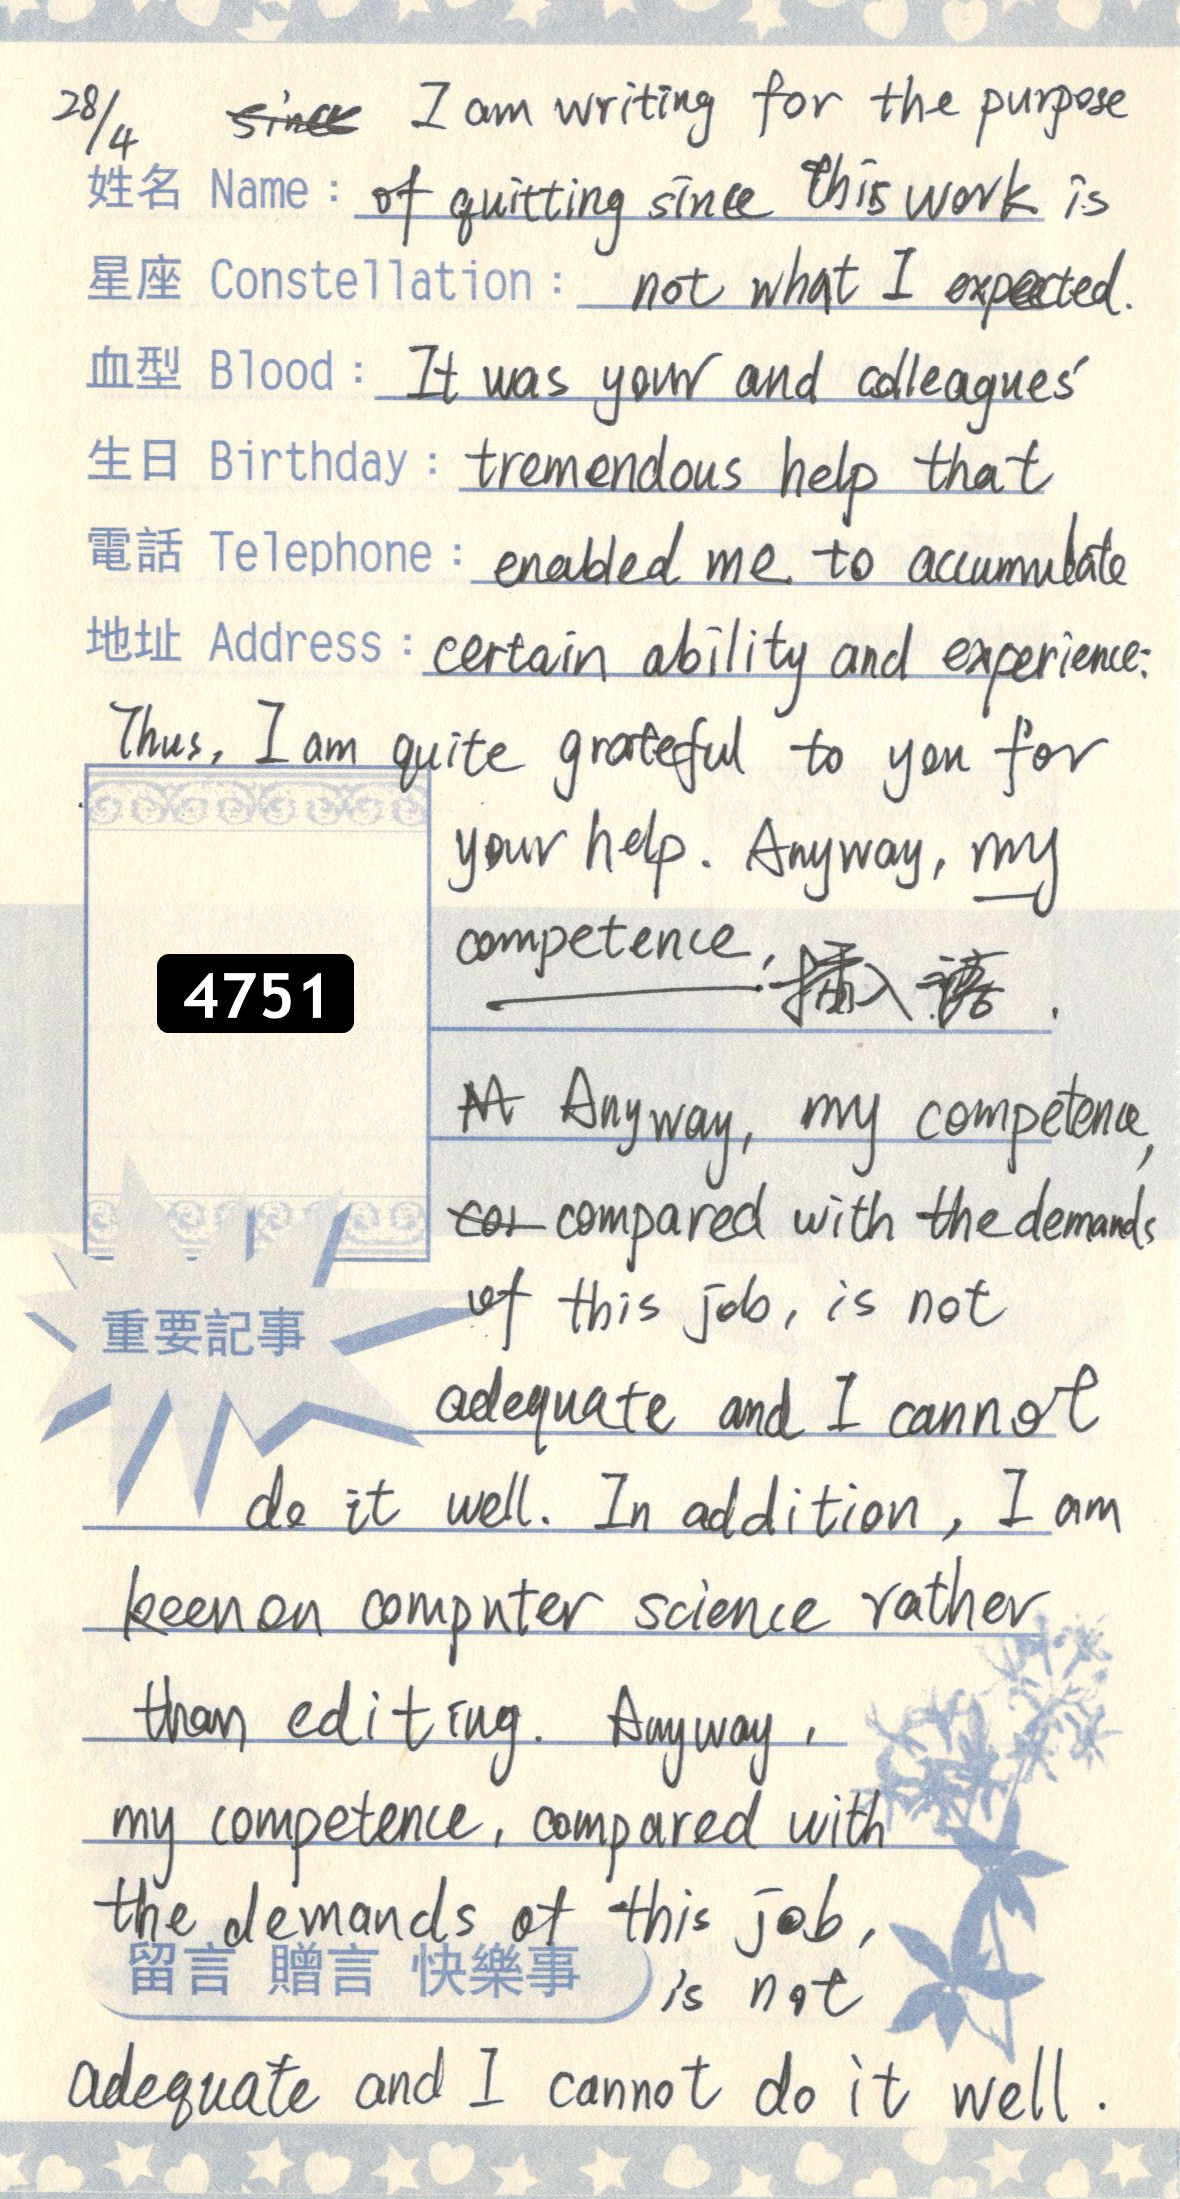 28/4 since I am writing for the purpose
姓名 Name: of quitting since this work is
星座 Constellation: not what I expected.
血型 Blood: It was your and colleagues'
生日 Birthday: tremendous help that
電話 Telephone: enabled me to accumulate
地址 Address: certain ability and experience.
Thus, I am quite grateful to you for
your help. Anyway, my
competence, 插入语.
4751
M Anyway, my competence,
con compared with the demands
of this job, is not
重要記事
adequate and I cannot
do it well. In addition, I am
keen on computer science rather
than editing. Anyway,
my competence, compared with
the demands of this job,
留言 贈言 快樂事
is not
adequate and I cannot do it well.